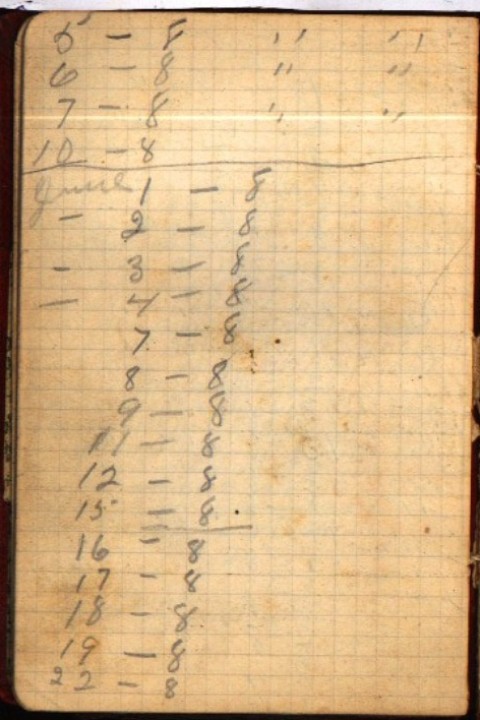 5 - 8 " "
6 - 8 " "
7 - 8 " "
10 - 8
June 1 - 8
- 2 - 8
- 3 - 8
- 4 - 8
7 - 8
8 - 8
9 - 8
11 - 8
12 - 8
15 - 8
16 - 8
17 - 8
18 - 8
19 - 8
22 - 8